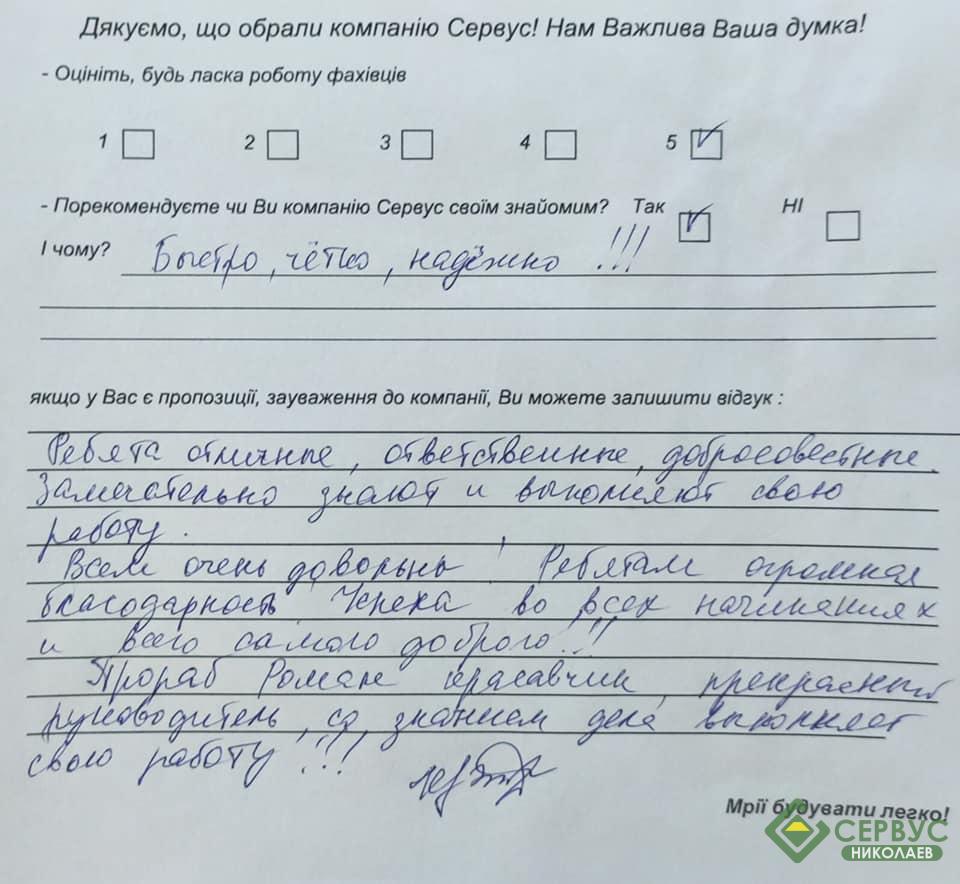 Дякуємо, що обрали компанію Сервус! Нам Важлива Ваша думка!
- Оцініть, будь ласка роботу фахівців
1 2 3 4 5
- Порекомендуєте чи Ви компанію Сервус своїм знайомим? Так НІ
І чому? Быстро, чётко, надёжно !!!
якщо у Вас є пропозиції, зауваження до компанії, Ви можете залишити відгук :
Ребята отличные, ответственные, добросовестные.
Замечательно знают и выполняют свою
работу.
Всем очень довольны! Ребятам огромная
благодарность! Успеха во всех начинаниях
и всего самого доброго!!!
Прораб Роман красавчик, прекрасный
руководитель, со знанием дела выполняет
свою работу!!!
Мрії будувати легко!
СЕРВУС
НИКОЛАЕВ